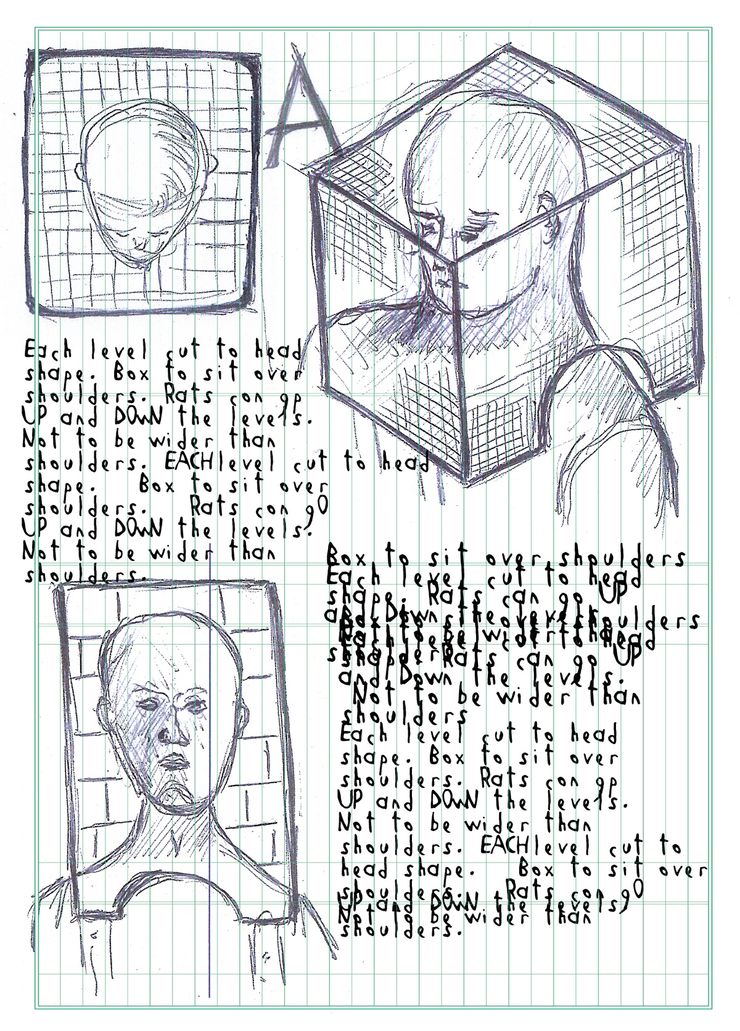 A
Each level cut to head
shape. Box to sit over
shoulders. Rats con gp
UP and DOWN the levels.
Not to be wider than
shoulders. EACH level cut to head
shape. Box to sit over
shoulders. Rats con gO
UP and DOWN the levels.
Not to be wider than
shoulders.
Box to sit over shoulders
Each level cut to head
shape. Rats can go UP
and Down the levels.
shape. Rats can go UP
and Down the levels.
Not to be wider than
shoulders
Each level cut to head
shape. Box to sit over
shoulders. Rats con gp
UP and DOWN the levels.
Not to be wider than
shoulders. EACH level cut to
head shape. Box to sit over
shoulders. Rats con gO
UP and DOWN the levels,
Not to be wider than
shoulders.